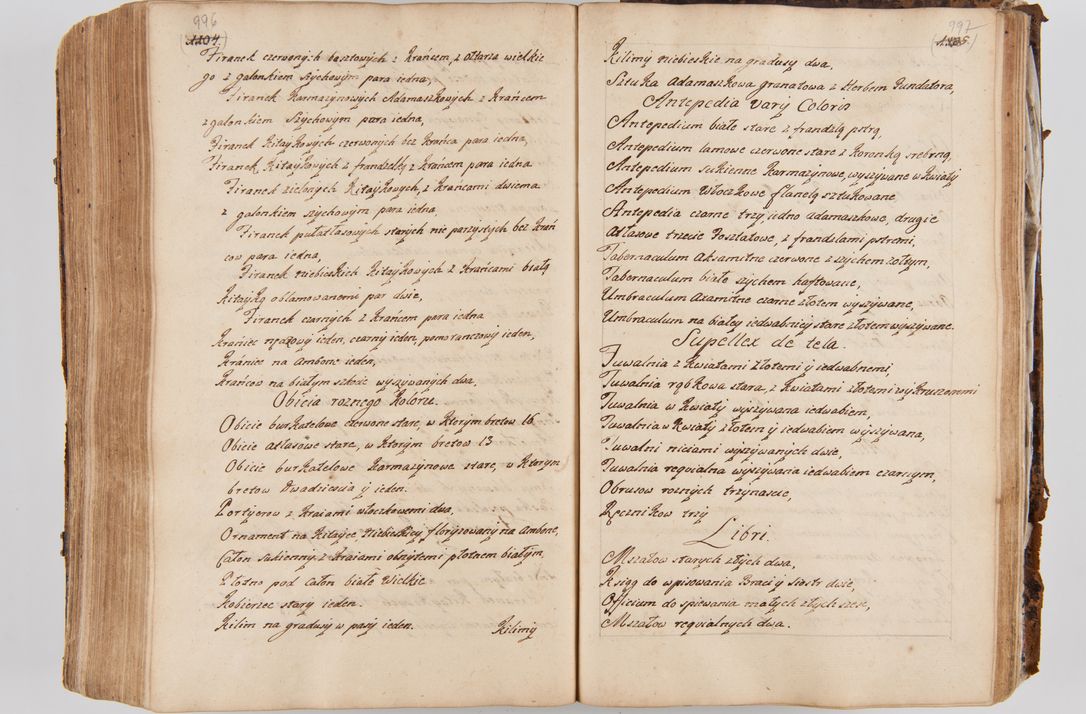 996
1104.
Firanek czerwonych bosztowych z Krańcem, z ołtarza wielkie
go z galonkiem szychowym para iedna,
Firanek Karmazynowych Adamaszkowych z Krańcem
z galonkiem Szychowym para iedna,
Firanek Kitaykowych czerwonych bez Krańca para iedna,
Firanek, Kitaykowych z frandzelką z Krańcem para iedna
Firanek zielonych Kitaykowych, z Krańcami dwiema
z galonkiem szychowym para iedna,
Firanek pułatłasowych starych nie parzystych bez Krań
cow para iedna,
Firanek niebieskich Kitaykowych z Krańcami białą
Kitayką oblamowanemi par dwie,
Firanek czarnych z Krańcem para iedna
Kraniec rządzowy ieden, czarny ieden, pomoranczowy ieden,
Kraniec na Ambone ieden,
Krańcow na białym szkość wyszywanych dwa,
Obicia roznego Koloru.
Obicie burkatelowe czerwone stare, w Ktorym bretow 16.
Obicie atłasowe stare, w Ktorym bretow 13
Obicie burkatelowe Karmazynowe stare, w Ktorym
bretow Dwadziescia y ieden.
Portyerow z Kraiami włoczkowemi dwa,
Ornament na Kitayce, Niebieskiey, floryzowany na Ambone,
Całon sukienny z Kraiami obszytemi płotnem białym,
Płotno pod Całon białe Wielkie
Kobierzec stary ieden.
Kilim na gradusy w pasy ieden.
Kilimy
997
1105.
Kilimy niebieskie na gradusy dwa,
Sztuka adamaszkowa granatowa z Herbem Fundatora,
Antepedia vary Coloris
Antepedium białe stare z frandzlą pstrą,
Antepedium lamowe czerwone stare z Koronką srebrną,
Antepedium sukienne Karmazynowe, wyszywane w Kwiaty
Antepedium Włoczkowe flanelą sztukowane
Antepedia czarne trzy, iedno adamaszkowe, drugie
Atłasowe trzecie Posztatowe, z frandzlami pstremi,
Tabernaculum Aksamitne czerwone z szychem zołtym,
Tabernaculum białe szychem haftowane,
Umbraculum axamitne czarne złotem wyszywane,
Umbraculum na białey iedwabnicy stare złotem wyszywane.
Supellex de tela.
Tuwalnia z Kwiatami złotemi y iedwabnemi,
Tuwalnia rąbkowa stara, z Kwiatami złotemi wykruszonemi
Tuwalnia w Kwiaty wyszywana iedwabiem,
Tuwalnia w Kwiaty złotem y iedwabiem wyszywana,
Tuwalni niciami wyszywanych dwie,
Tuwalnia requialna wyszywana iedwabiem czarnym,
Obrusow roznych trzynascie,
Ręcznikow trzy
Libri.
Mszałow starych złych dwa,
Ksiąg do wpisowania Braci y Siostr dwie,
Officium do spiewania małych złych szesc,
Mszałow requialnych dwa.